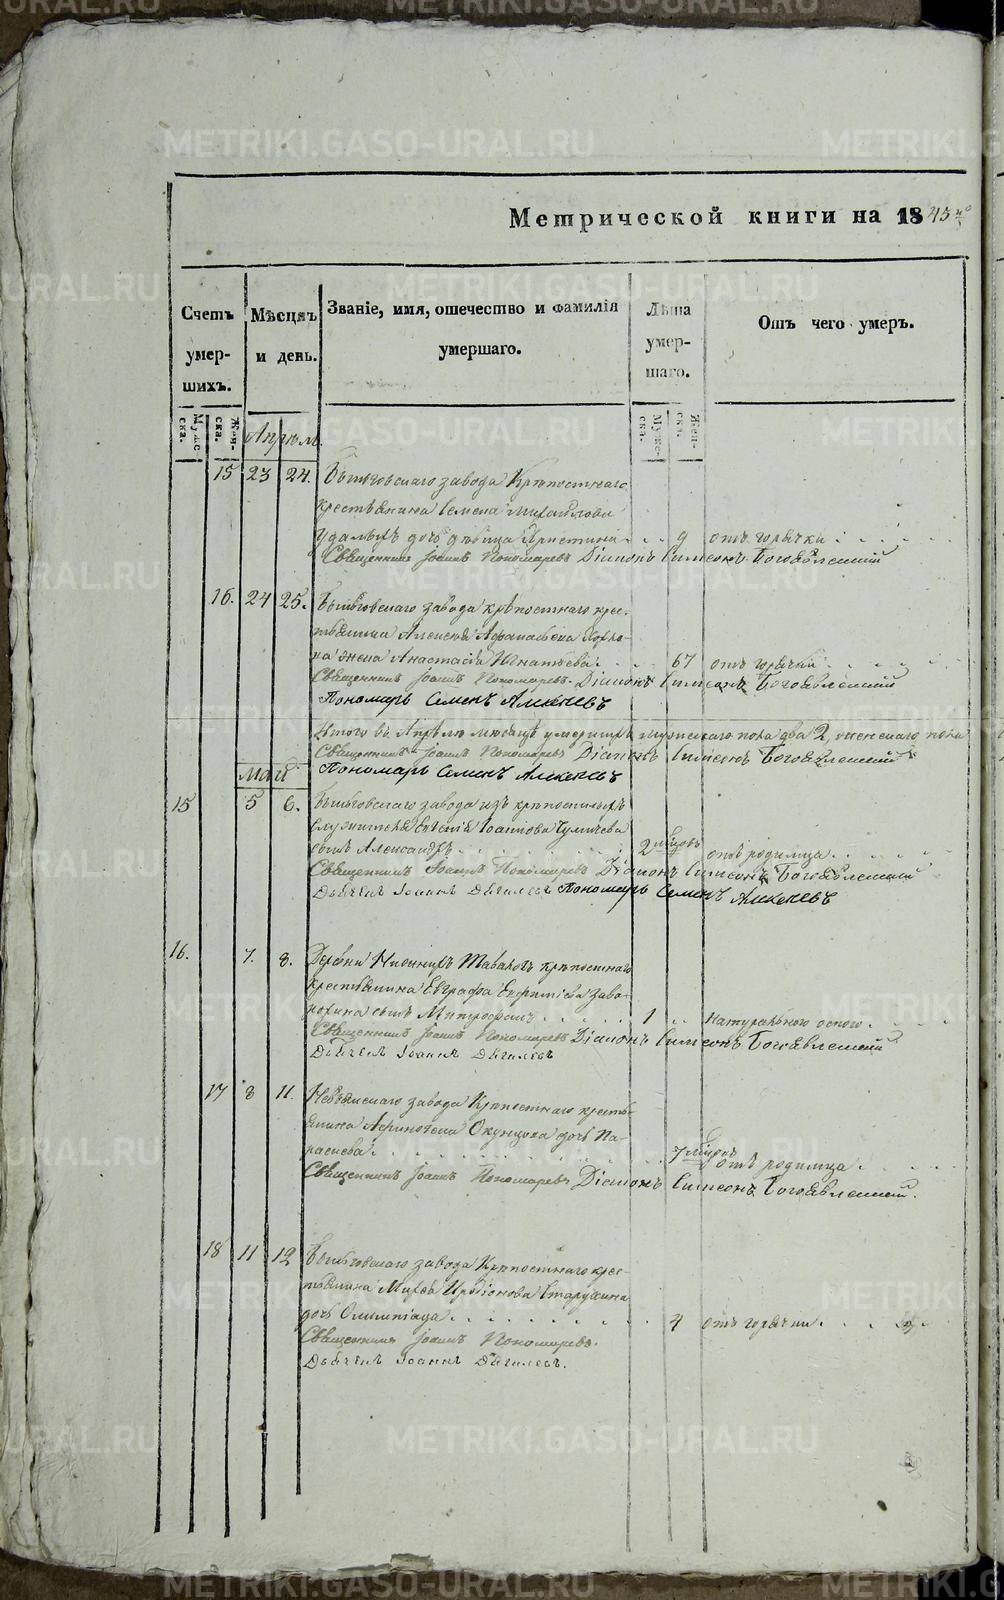 METRIKI.GASO-URAL.RU
Метрической книги на 1843 го
Счетъ умер-шихъ.
Мѣсяцъ и день.
Званіе, имя, отечество и фамилія умершаго.
Лѣта умер-шаго.
Отъ чего умеръ.
Муже-ска.
Жен-ска.
Муже-ска.
Жен-ска.
Апрѣль.
15 23 24. завода Крѣпостнаго
крестьянина Семена Михайлова
дочь дѣвица Христина . . . 9 отъ горячки . . . .
Священникъ Іоаннъ Пономаревъ Діаконъ Симеонъ Богоявленскій
16. 24 25. завода крѣпостнаго крес-
тьянина Алексея Афанасьева
на жена Анастасія Игнатьева . . . 67 отъ горячки . . . .
Священникъ Іоаннъ Пономаревъ. Діаконъ Симеонъ Богоявленскій
Пономарь Семенъ Алексеевъ
Итого въ Апрѣлѣ месяцѣ умершихъ мужескаго пола два 2, женскаго пола
Священникъ Іоаннъ Пономаревъ Діаконъ Симеонъ Богоявленскій
Пономарь Семенъ Алексеевъ
Май
15 5 6. завода изъ крѣпостныхъ
служителя Іоаннова
сынъ Александръ . . . . 2 отъ родимца . . . .
Священникъ Іоаннъ Пономаревъ Діаконъ Симеонъ Богоявленскій
Дьячекъ Іоаннъ Дягилевъ Пономарь Семенъ Алексеевъ
16. 7. 8. Деревни Нижнихъ Тавологъ крѣпостнаго
крестьянина Евграфа
сынъ Митрофанъ . . . . 1 Натуральною оспою . . . .
Священникъ Іоаннъ Пономаревъ Діаконъ Симеонъ Богоявленскій
Дьячекъ Іоаннъ Дягилевъ
17 8 11. Невьянскаго завода Крѣпостнаго кресть-
янина Окунцова дочь Па-
раскева . . . . 7 отъ родимца . . . .
Священникъ Іоаннъ Пономаревъ Діаконъ Симеонъ Богоявленскій.
18 11 12 завода Крѣпостнаго крес-
тьянина Иродіонова Старухина
дочь Олимпіада . . . . 4 отъ горячки . . . .
Священникъ Іоаннъ Пономаревъ.
Дьячекъ Іоаннъ Дягилевъ.